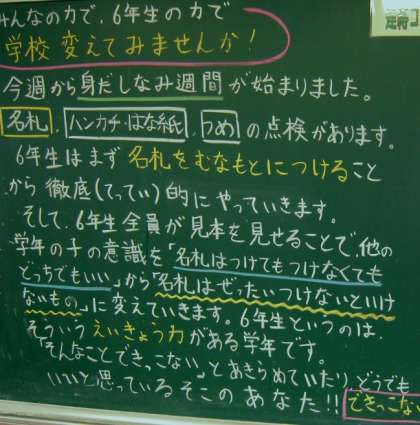 みんなの力で、6年生の力で
学校変えてみませんか!
今週から身だしなみ週間が始まりました。
名札、ハンカチ・はな紙、つめの点検があります。
6年生はまず名札をむなもとにつけること
から徹底(てってい)的にやっていきます。
そして、6年生全員が見本を見せることで、他の
学年の子の意識を「名札はつけてもつけなくても
どっちでもいい」から「名札はぜったいつけないといけ
ないもの」に変えていきます。6年生というのは、
そういうえいきょう力がある学年です。
「そんなことできっこない」とあきらめていたり、どうでも
いいと思っているそこのあなた!!できっこな